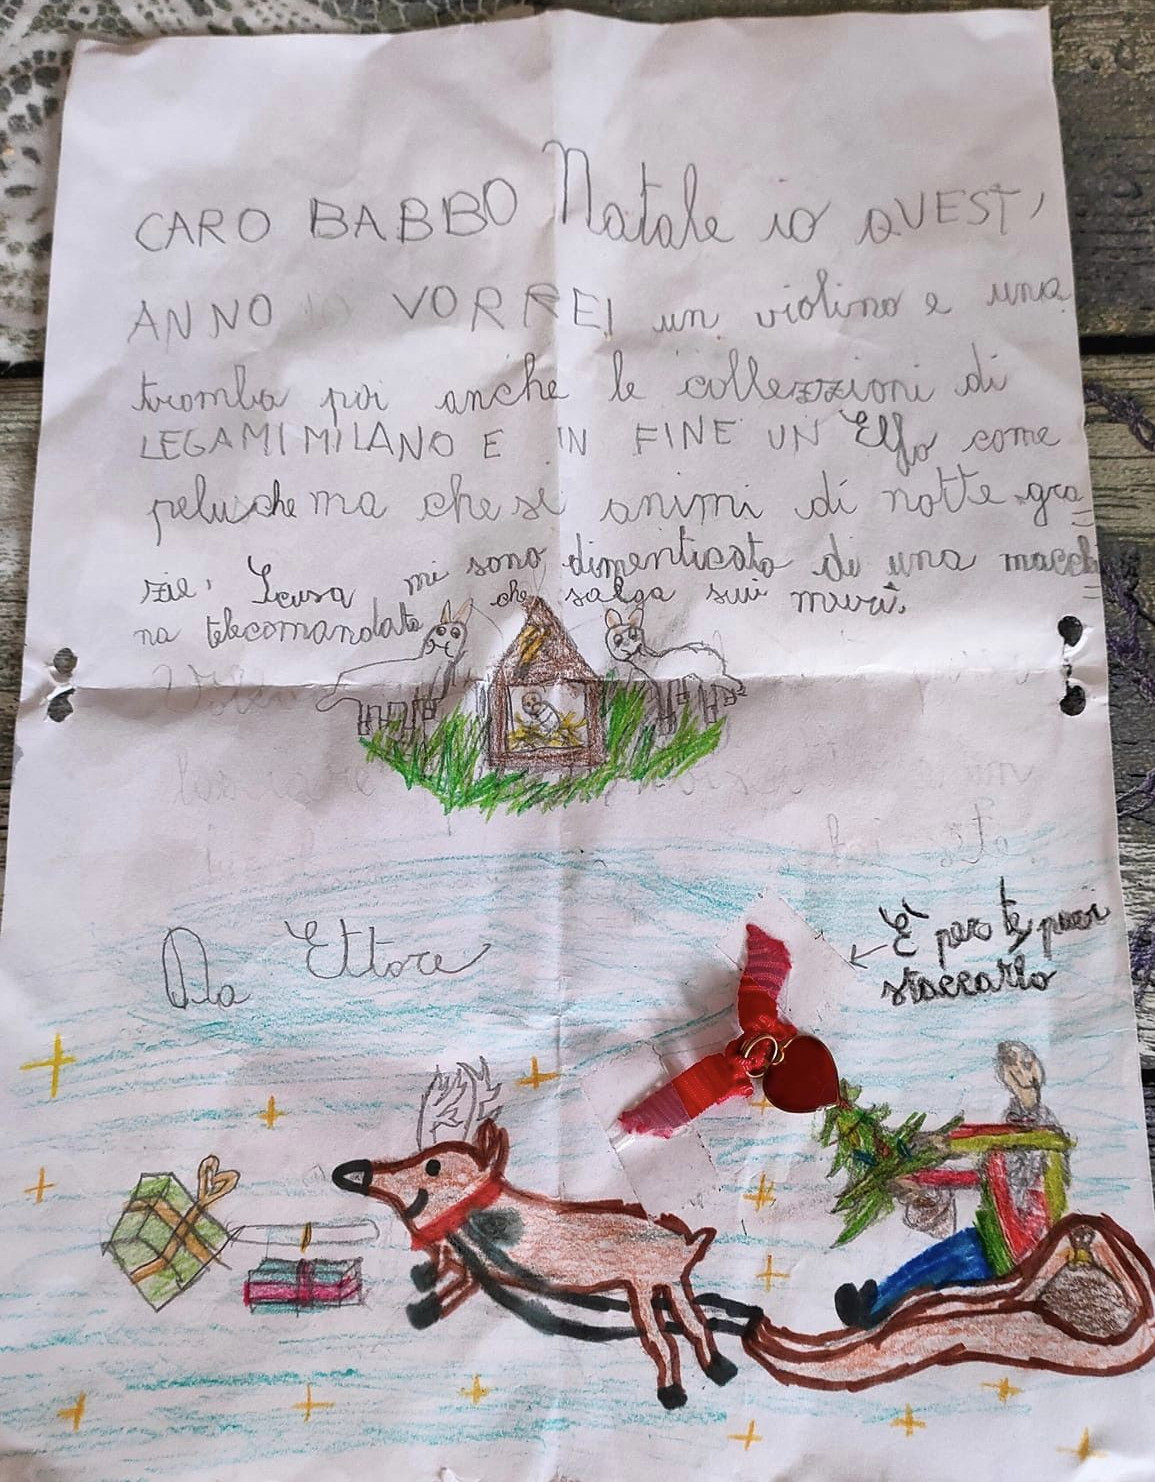 CARO BABBO Natale io QUEST'
ANNO VORREI un violino e una
tromba poi anche le collezzioni di
LEGAMI MILANO E IN FINE UN Elfo come
peluche ma che si animi di notte gra=
zie. Scusa mi sono dimenticato di una macchi
na telecomandata che salga sui muri.
Da Ettore
← È per te puoi
staccarlo